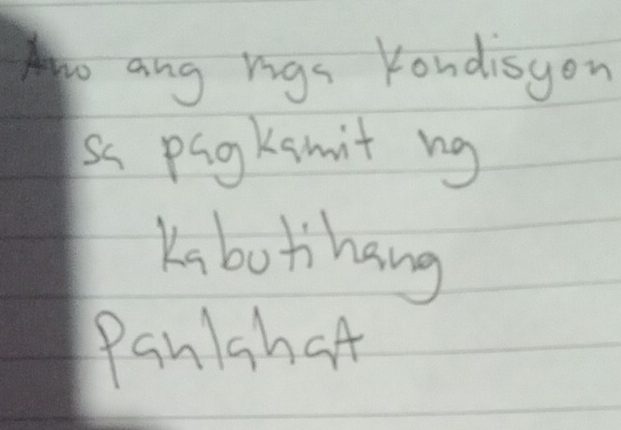 Ano ang mga Kondisyon
sa pagkamit ng
Kabutihang
Panlahat